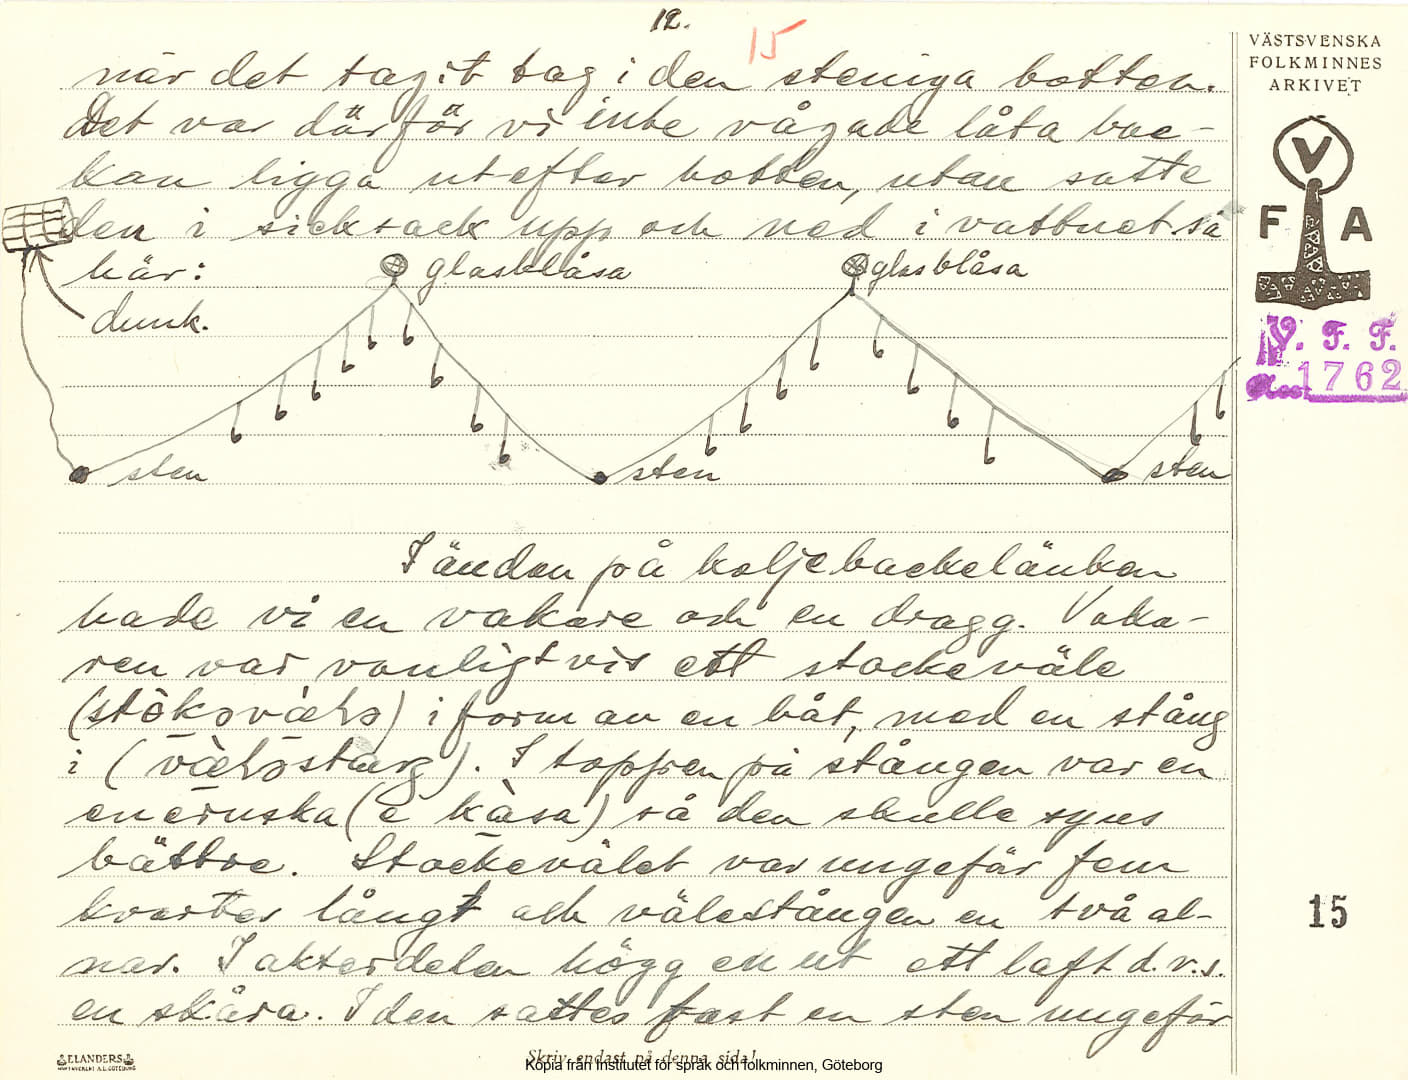 12.
15
när det tagit tag i den steniga botten.
Det var därför vi inte vågade låta bac-
kan ligga utefter botten, utan satte
den i sicksack upp och ned i vattnet så
här:
glasblåsa
glasblåsa
dunk.
sten
sten
sten
I ändan på koljebackelänken
hade vi en vakare och en dragg. Vaka-
ren var vanligtvis ett stockeväle
i form av en båt, med en stång
i I toppen på stången var en
eneruska (e kåsa) så den skulle synas
bättre. Stockevälet var ungefär fem
kvarter långt och välestången en två al-
nar. I akterdelen högg en ut ett laft d.v.s.
en skåra. I den sattes fast en sten ungefär
VÄSTSVENSKA
FOLKMINNES
ARKIVET
V
F A
V. F. F.
1762
15
ELANDERS
Skriv endast på denna sida!
Kopia från Institutet för språk och folkminnen, Göteborg